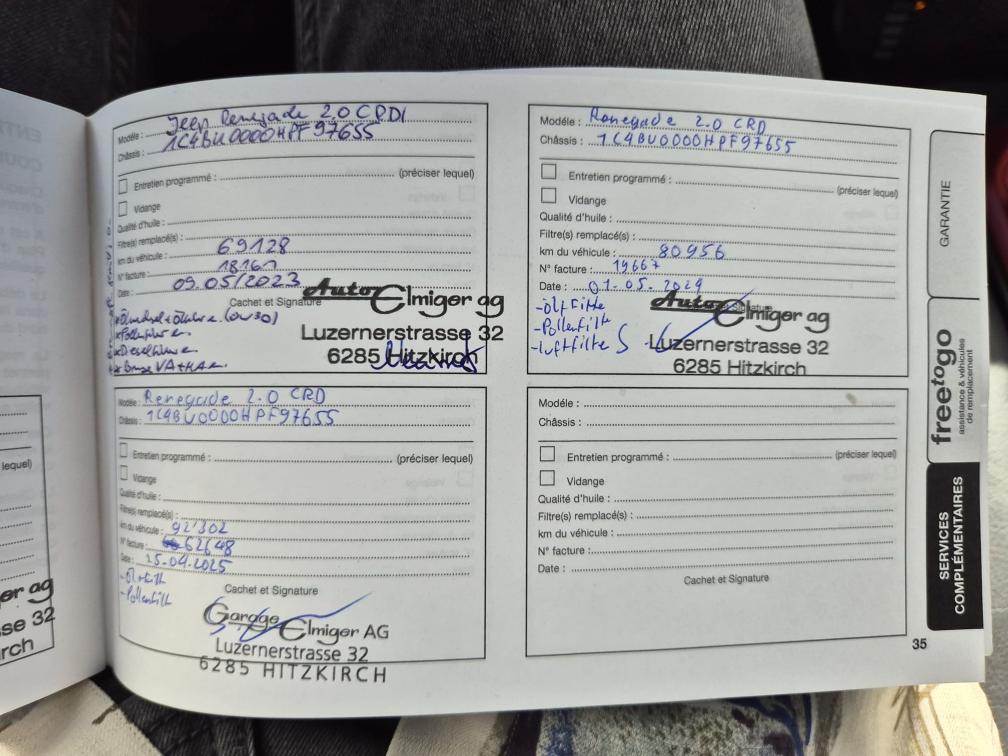 Modèle : Jeep Renegade 2.0 CRDI
Châssis : 1C4BU0000HPF97655
Entretien programmé : (préciser lequel)
Vidange
Qualité d'huile :
Filtre(s) remplacé(s) :
km du véhicule : 69128
N° facture : 18161
Date : 09.05/2023
Cachet et Signature
Auto Elmiger ag
Luzernerstrasse 32
6285 Hitzkirch
(0W30)
Modèle : Renegade 2.0 CRD
Châssis : 1C4BU0000HPF97655
Entretien programmé : (préciser lequel)
Vidange
Qualité d'huile :
Filtre(s) remplacé(s) :
km du véhicule : 80956
N° facture : 19667
Date : 01.05.2024
-Ölfilte
-Pollenfilt
-Luftfilte
Auto Elmiger ag
Luzernerstrasse 32
6285 Hitzkirch
Modèle : Renegade 2.0 CRD
Châssis : 1C4BU0000HPF97655
Entretien programmé : (préciser lequel)
Vidange
Qualité d'huile :
Filtre(s) remplacé(s) :
km du véhicule : 92'302
N° facture : 62648
Date : 25.04.2025
-Ölfilt
-Pollenfilt
Cachet et Signature
Garage Elmiger AG
Luzernerstrasse 32
6285 HITZKIRCH
Modèle :
Châssis :
Entretien programmé : (préciser lequel)
Vidange
Qualité d'huile :
Filtre(s) remplacé(s) :
km du véhicule :
N° facture :
Date :
Cachet et Signature
35
GARANTIE
freetogo
assistance & véhicules
de remplacement
SERVICES
COMPLÉMENTAIRES
lequel)
er ag
se 32
rch